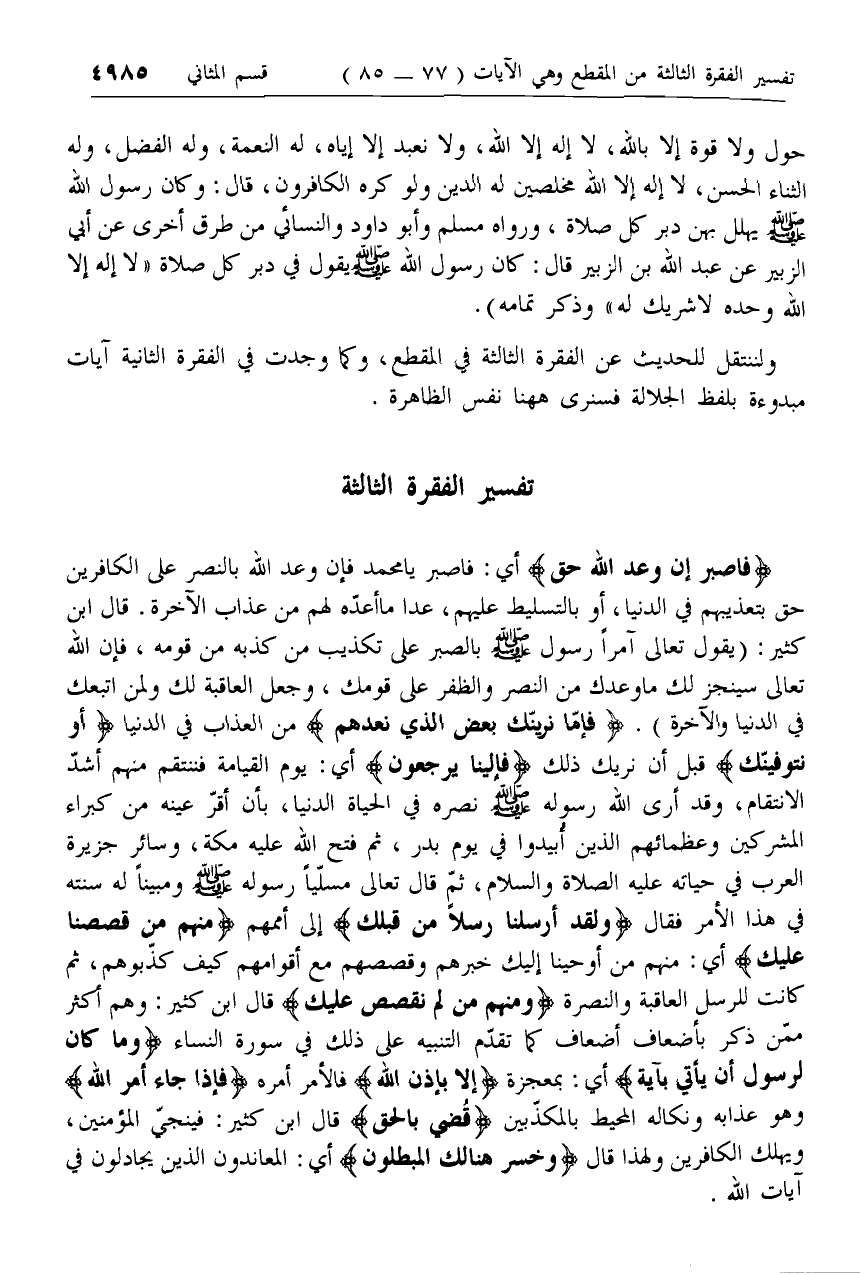 تفسير الفقرة الثالثة من المقطع وهي الآيات ( ٧٧ — ٨٥ ) قسم المثاني ٤٩٨٥
حول ولا قوة إلا بالله، لا إله إلا الله، ولا نعبد إلا إياه، له النعمة، وله الفضل، وله
الثناء الحسن، لا إله إلا الله مخلصين له الدين ولو كره الكافرون، قال: وكان رسول الله
ﷺ يهلل بهن دبر كل صلاة ، ورواه مسلم وأبو داود والنسائي من طرق أخرى عن أبي
الزبير عن عبد الله بن الزبير قال: كان رسول الله ﷺ يقول في دبر كل صلاة «لا إله إلا
الله وحده لاشريك له» وذكر تمامه).
ولننتقل للحديث عن الفقرة الثالثة في المقطع، وكما وجدت في الفقرة الثانية آيات
مبدوءة بلفظ الجلالة فسنرى ههنا نفس الظاهرة .
تفسير الفقرة الثالثة
﴿فاصبر إن وعد الله حق﴾ أي: فاصبر يامحمد فإن وعد الله بالنصر على الكافرين
حق بتعذيبهم في الدنيا، أو بالتسليط عليهم، عدا ماأعدّه لهم من عذاب الآخرة. قال ابن
كثير: (يقول تعالى آمراً رسول ﷺ بالصبر على تكذيب من كذبه من قومه ، فإن الله
تعالى سينجز لك ماوعدك من النصر والظفر على قومك ، وجعل العاقبة لك ولمن اتبعك
في الدنيا والآخرة ) . ﴿ فإمّا نرينّك بعض الذي نعدهم ﴾ من العذاب في الدنيا ﴿ أو
نتوفينّك﴾ قبل أن نريك ذلك ﴿فإلينا يرجعون﴾ أي: يوم القيامة فننتقم منهم أشدّ
الانتقام، وقد أرى الله رسوله ﷺ نصره في الحياة الدنيا، بأن أقرّ عينه من كبراء
المشركين وعظمائهم الذين أُبيدوا في يوم بدر ، ثم فتح الله عليه مكة، وسائر جزيرة
العرب في حياته عليه الصلاة والسلام، ثمّ قال تعالى مسلّياً رسوله ﷺ ومبيناً له سنته
في هذا الأمر فقال ﴿ولقد أرسلنا رسلاً من قبلك﴾ إلى أممهم ﴿منهم من قصصنا
عليك﴾ أي: منهم من أوحينا إليك خبرهم وقصصهم مع أقوامهم كيف كذّبوهم، ثم
كانت للرسل العاقبة والنصرة ﴿ومنهم من لم نقصص عليك﴾ قال ابن كثير: وهم أكثر
ممّن ذكر بأضعاف أضعاف كما تقدّم التنبيه على ذلك في سورة النساء ﴿وما كان
لرسول أن يأتي بآية﴾ أي: بمعجزة ﴿إلا بإذن الله﴾ فالأمر أمره ﴿فإذا جاء أمر الله﴾
وهو عذابه ونكاله المحيط بالمكذّبين ﴿قُضي بالحق﴾ قال ابن كثير: فينجيّ المؤمنين،
ويهلك الكافرين ولهذا قال ﴿وخسر هنالك المبطلون﴾ أي: المعاندون الذين يجادلون في
آيات الله .